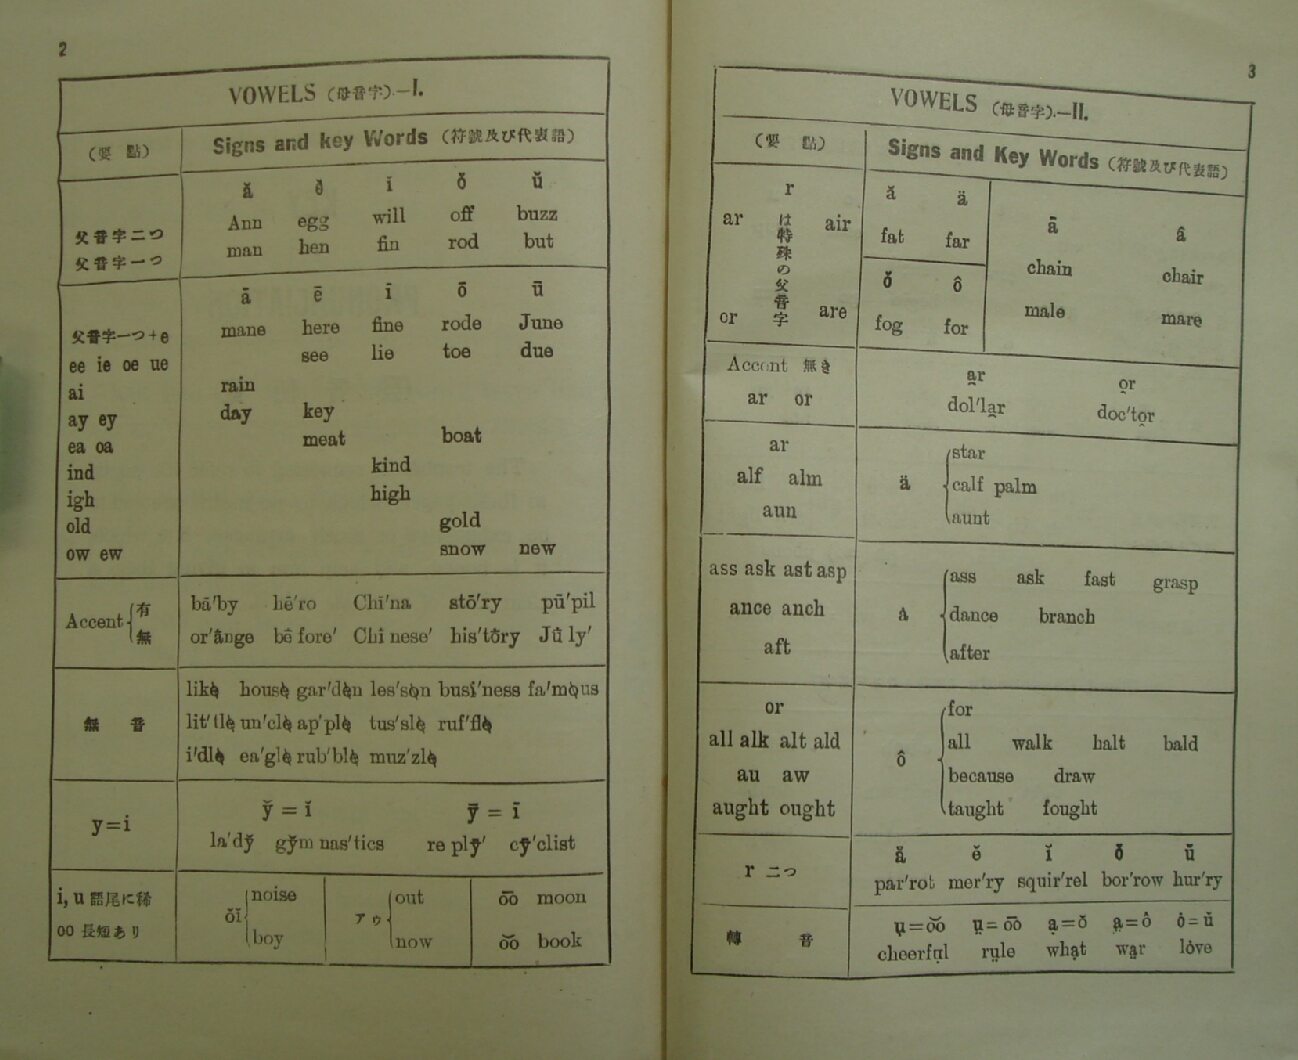 2
VOWELS (母音字).—I.
(要點) Signs and key Words (符號及び代表語)
ă ĕ ĭ ŏ ŭ
父音字二つ Ann egg will off buzz
父音字一つ man hen fin rod but
ā ē ī ō ū
父音字一つ+e mane here fine rode June
ee ie oe ue see lie toe due
ai rain
ay ey day key
ea oa meat boat
ind kind
igh high
old gold
ow ew snow new
Accent 有 bā′by hē′ro Chī′na stō′ry pū′pil
無 or′ånge bė fore′ Chi nese′ his′tȯry Jů ly′
無音 like house gar′den les′son busi′ness fa′mous
lit′tle un′cle ap′ple tus′sle ruf′fle
i′dle ea′gle rub′ble muz′zle
y=i y̆ = ĭ ȳ = ī
la′dy̆ gy̆m nas′tics re plȳ′ cȳ′clist
i, u 語尾に稀 ŏĭ noise アゥ out o͞o moon
oo 長短あり boy now o͝o book
3
VOWELS (母音字).—II.
(要點) Signs and Key Words (符號及び代表語)
r は特殊の父音字
ar air
or are
ă ä ā â
fat far chain chair
ŏ ô male mare
fog for
Accent 無き ar or
ar or dol′lar doc′tor
ar star
alf alm ä calf palm
aun aunt
ass ask ast asp ass ask fast grasp
ance anch ȧ dance branch
aft after
or for
all alk alt ald ô all walk halt bald
au aw because draw
aught ought taught fought
r 二つ ă ĕ ĭ ŏ ŭ
par′rot mer′ry squir′rel bor′row hur′ry
轉音 ụ=o͝o ṳ=o͞o ạ=ŏ a̤=ô ȯ=ŭ
cheerfụl rṳle whạt wa̤r lȯve